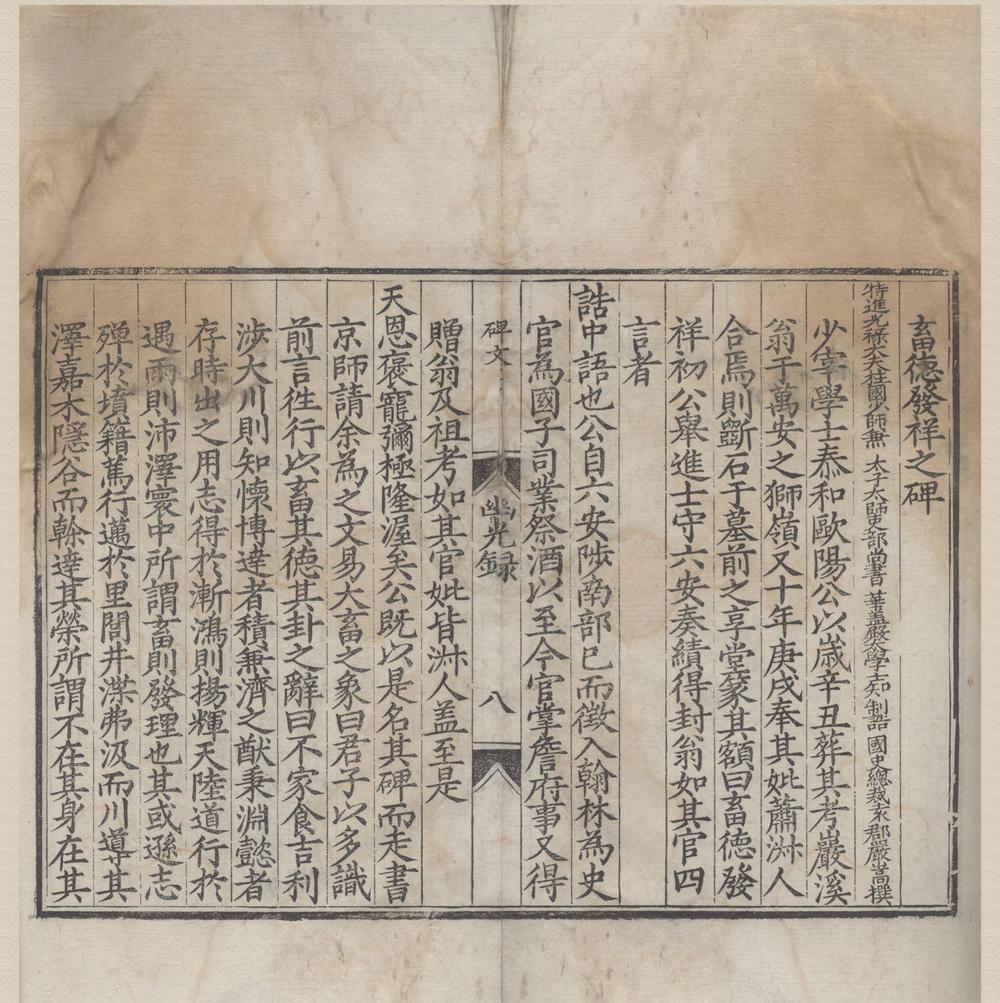 畜德發祥之碑
特進光祿大夫柱國少師兼 太子太師吏部尚書 華蓋殿大學士知 制誥 國史總裁袁郡嚴嵩撰
少宰學士泰和歐陽公以歲辛丑葬其考巖溪
翁于萬安之獅嶺又十年庚戌奉其妣蕭淋人
合焉則斵石于墓前之享堂篆其額曰畜德發
祥初公舉進士守六安奏績得封翁如其官四
言者
誥中語也公自六安陟南部已而徵入翰林為史
官為國子司業祭酒以至今官掌詹府事又得
碑文
幽光録
八
贈翁及祖考如其官妣皆淋人盖至是
天恩褒寵彌極隆渥矣公既以是名其碑而走書
京師請余為之文易大畜之象曰君子以多識
前言徃行以畜其德其卦之辭曰不家食吉利
涉大川則知懷博達者積兼濟之猷秉淵懿者
存時出之用志得於漸鴻則揚輝天陸道行於
遇雨則沛澤寰中所謂畜則發理也其或遜志
殫於墳籍篤行邁於里閭井渫弗汲而川道其
澤嘉木隱谷而榦達其榮所謂不在其身在其